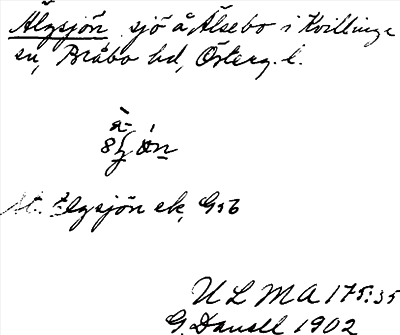 Älgsjön sjö å Älsebo i Kvillinge
sn, Bråbo hd, Österg. l.
Älgsjön ek, G56
ULMA 175:35
G. Danell 1902